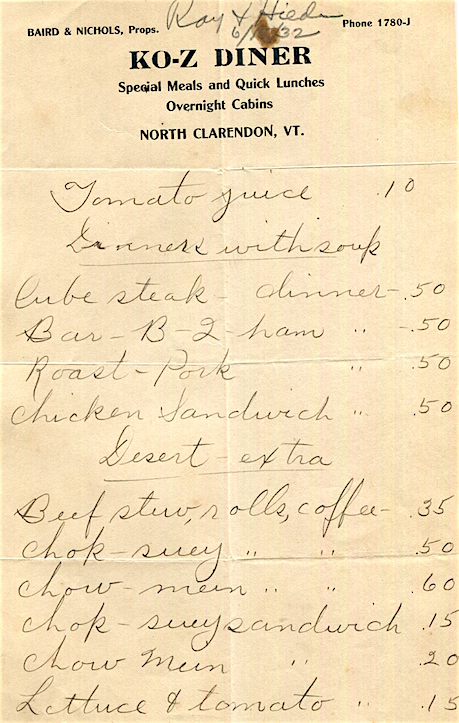 Ray & Hilda
BAIRD & NICHOLS, Props.
6/ /32
Phone 1780-J
KO-Z DINER
Special Meals and Quick Lunches
Overnight Cabins
NORTH CLARENDON, VT.
Tomato juice .10
Dinners with soup
Cube steak - dinner - .50
Bar-B-Q-ham " - .50
Roast-Pork " .50
Chicken Sandwich " .50
Desert - extra
Beef stew, rolls, coffee - .35
Chok-suey " " .50
Chow-mein " " .60
Chok-suey sandwich .15
Chow Mein " .20
Lettuce & tomato " .15